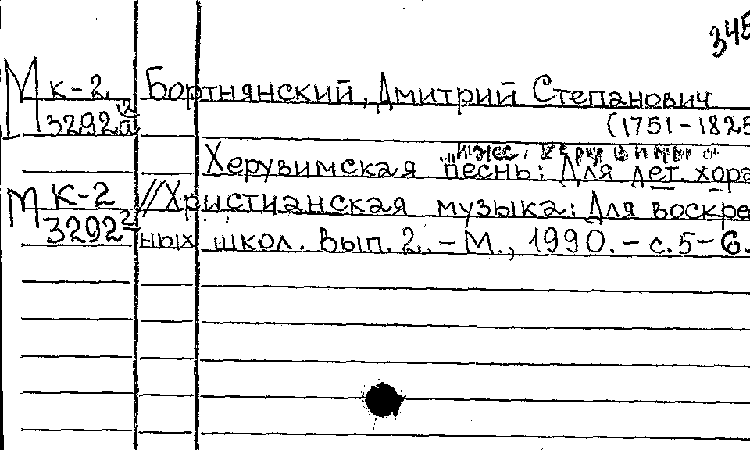 345
М К-2 Бортнянский, Дмитрий Степанович
3292 (1751-1825
"Иже херувимы"
Херувимская песнь: Для дет. хора
М К-2 //Христианская музыка: Для воскре
3292 ных школ. Вып. 2. - М., 1990. - с. 5-6.